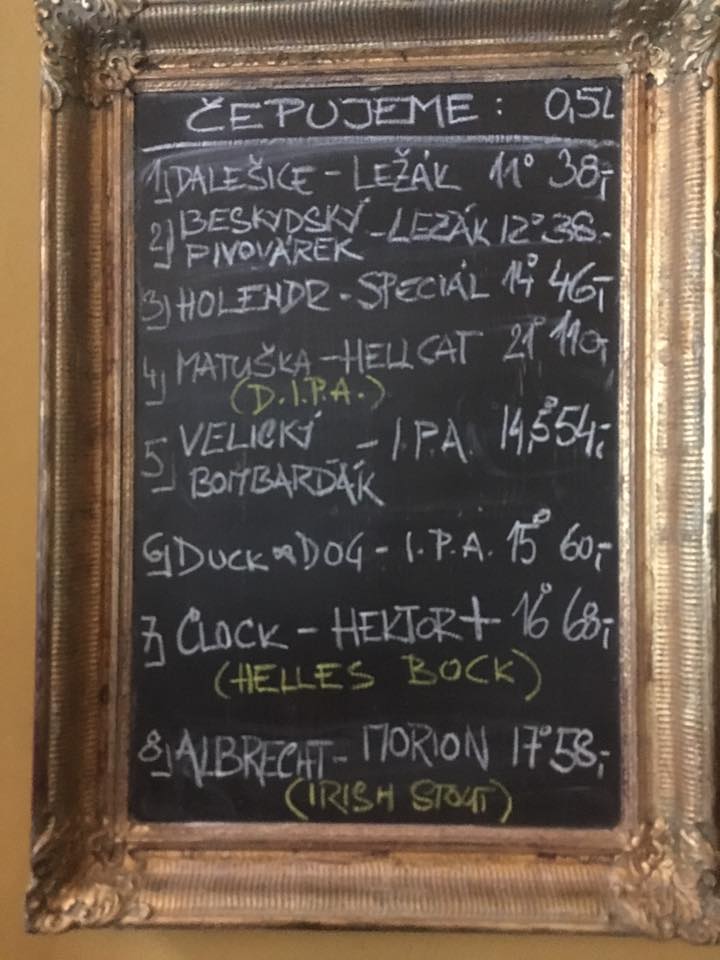 ČEPUJEME: 0,5L
1) DALEŠICE - LEŽÁK 11° 38,-
2) BESKYDSKÝ PIVOVÁREK - LEZÁK 12° 38.-
3) HOLENDR - SPECIÁL 14° 46,-
4) MATUŠKA - HELLCAT 21° 110,-
(D.I.P.A.)
5) VELICKÝ BOMBARĎÁK - I.P.A. 14,5° 54,-
6) DUCK & DOG - I.P.A. 15° 60,-
7) CLOCK - HEKTOR + 16° 68,-
(HELLES BOCK)
8) ALBRECHT - MORION 17° 58,-
(IRISH STOUT)